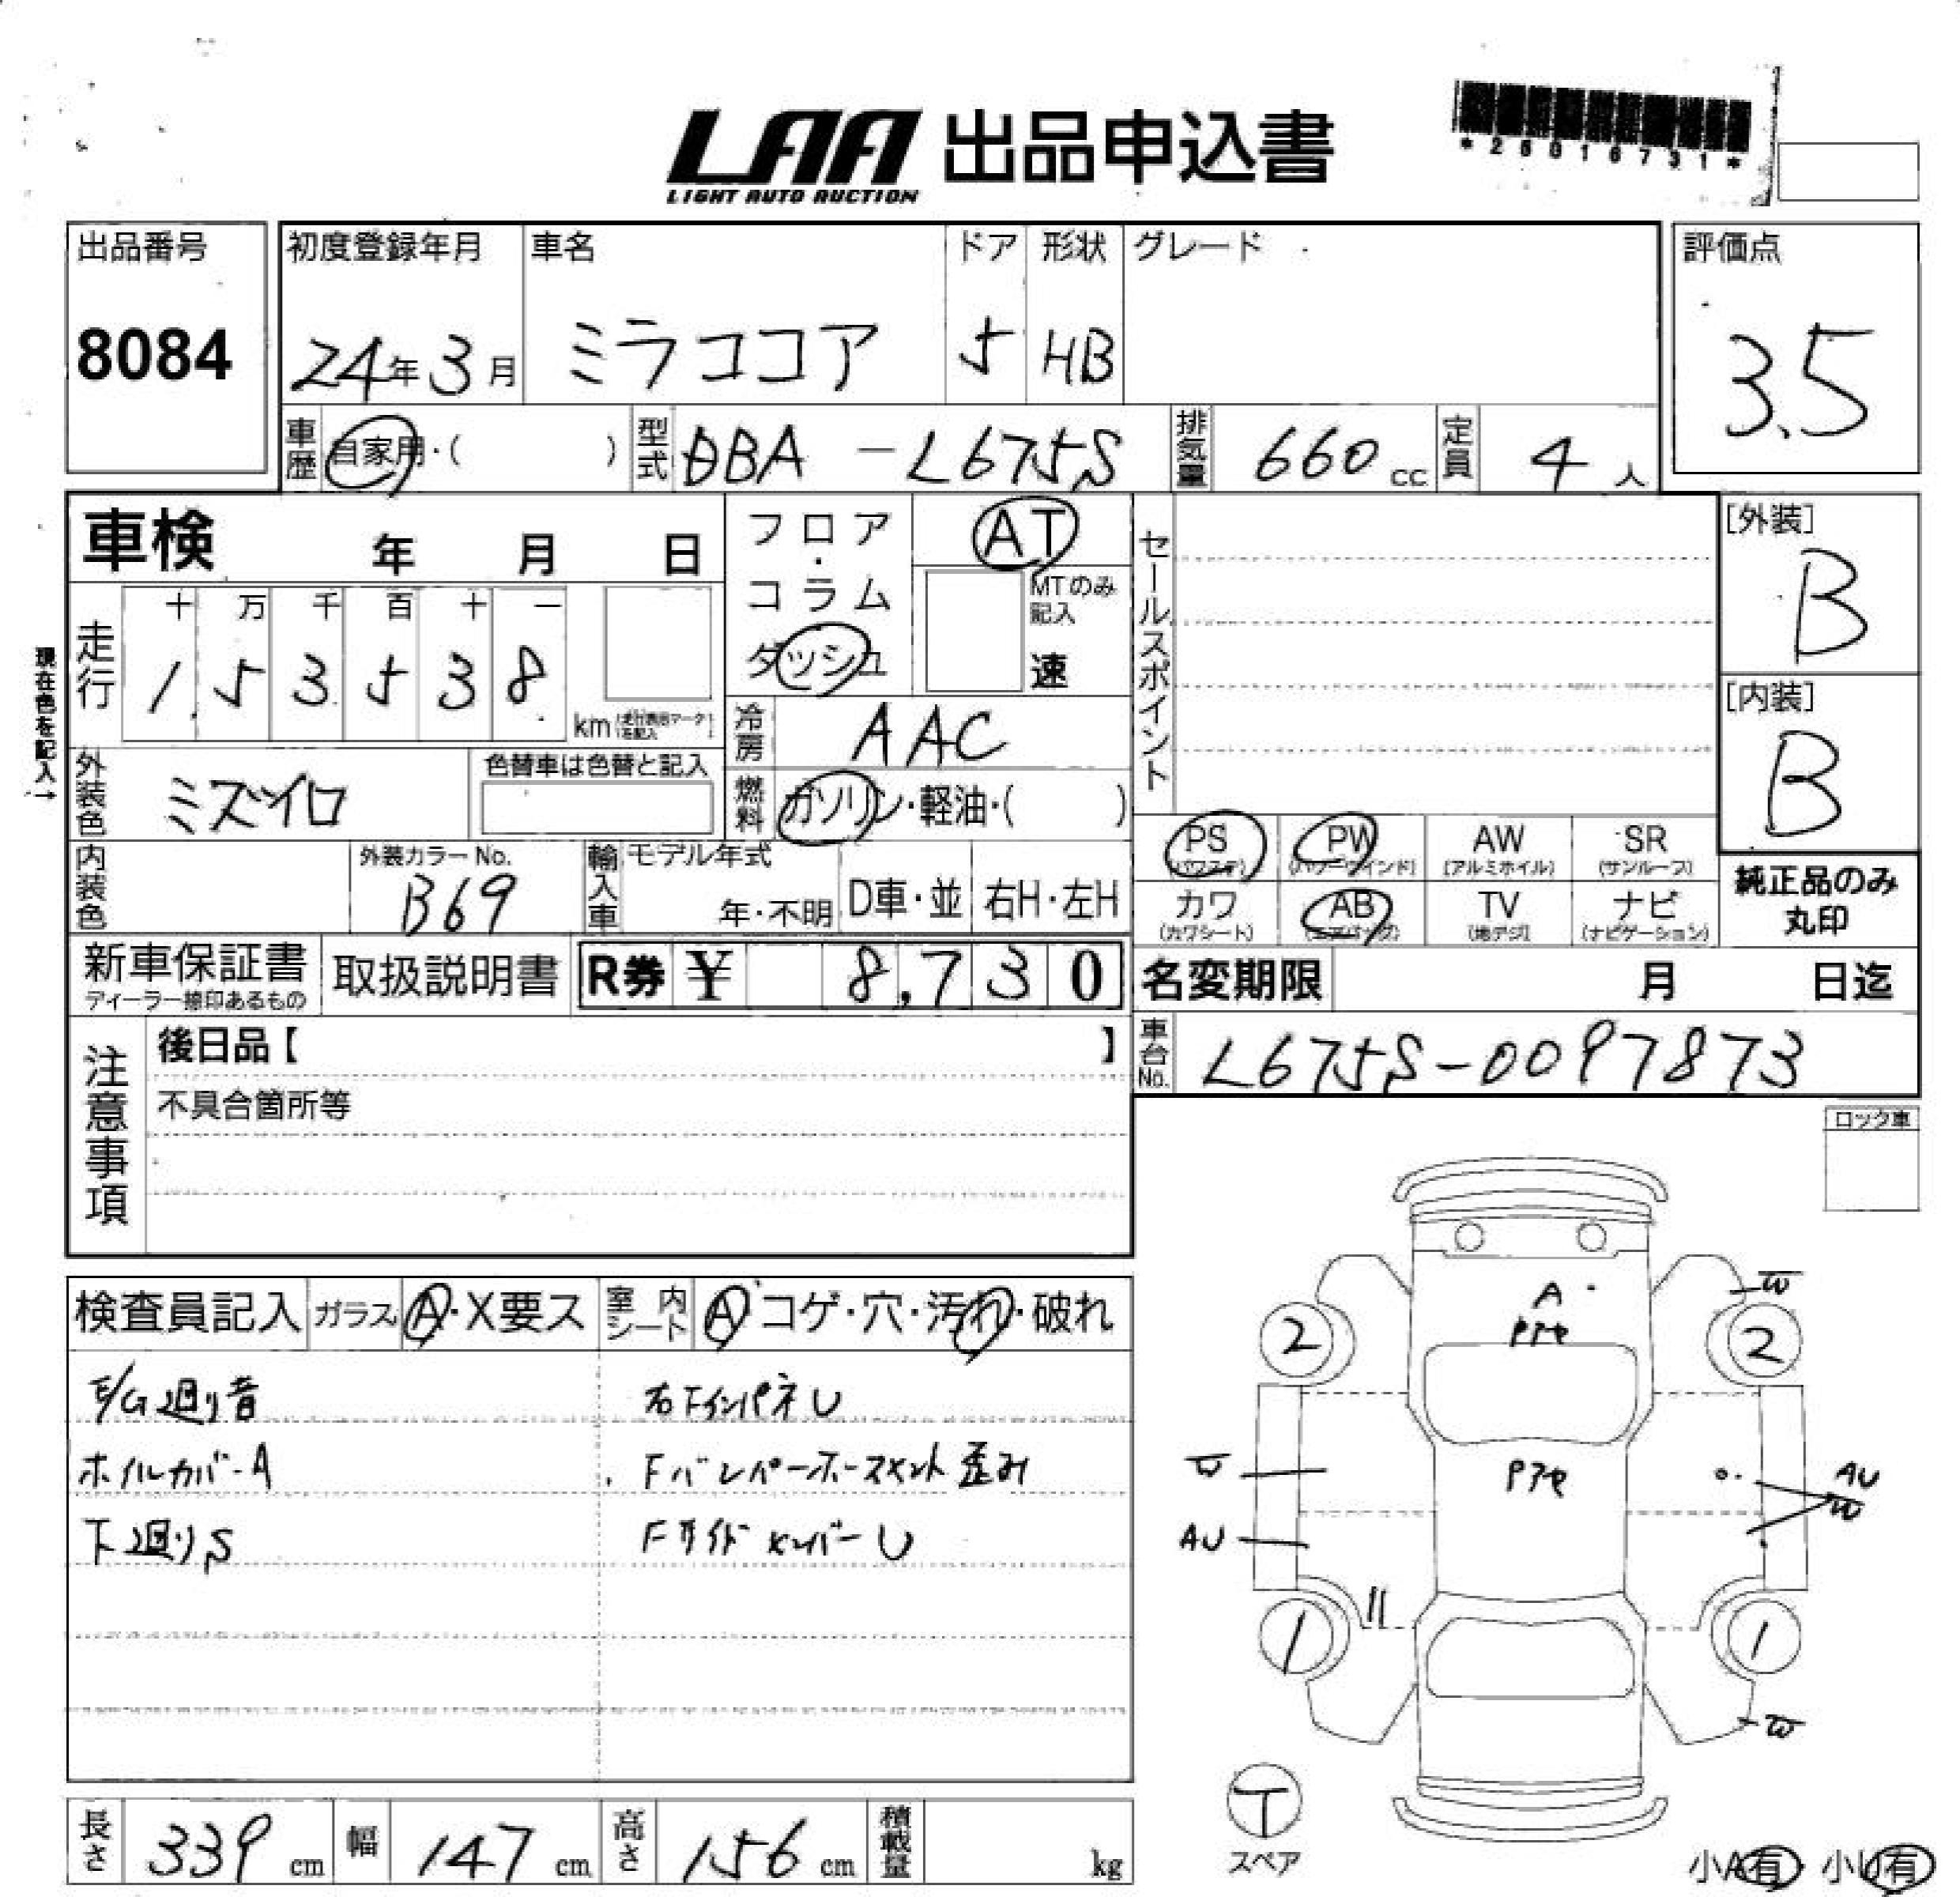 LAA 出品申込書
LIGHT AUTO AUCTION
*26016731*
出品番号
8084
初度登録年月
24年3月
車名
ミラココア
ドア
5
形状
HB
グレード
評価点
3.5
車歴
自家用・( )
型式
DBA-L675S
排気量
660 cc
定員
4 人
車検 年 月 日
フロア・コラム
ダッシュ
AT
MTのみ記入
速
セールスポイント
[外装]
B
[内装]
B
現在色を記入→
走行
十 万 千 百 十 一
1 5 3 5 3 8
km
冷房
AAC
外装色
ミズイロ
色替車は色替と記入
燃料
ガソリン・軽油・( )
PS (パワステ)
PW (パワーウインド)
AW (アルミホイル)
SR (サンルーフ)
カワ (カワシート)
AB (エアバッグ)
TV (地デジ)
ナビ (ナビゲーション)
純正品のみ
丸印
内装色
外装カラーNo.
B69
輸入車
モデル年式
年・不明
D車・並
右H・左H
新車保証書
ディーラー捺印あるもの
取扱説明書
R券 ¥ 8,730
名変期限 月 日迄
注意事項
後日品【 】
不具合箇所等
車台No.
L675S-0097873
ロック車
検査員記入
ガラス A・X要ス
室内シート A・コゲ・穴・汚れ・破れ
E/G廻り音
右FインパネU
ホイルカバーA
Fバンパーホースメント歪み
下廻りS
FサイドメンバーU
A
Pアセ
Pアセ
W
2
2
W
AU
AU
W
1
1
W
T
スペア
小A有 小U有
長さ 339 cm
幅 147 cm
高さ 156 cm
積載量 kg